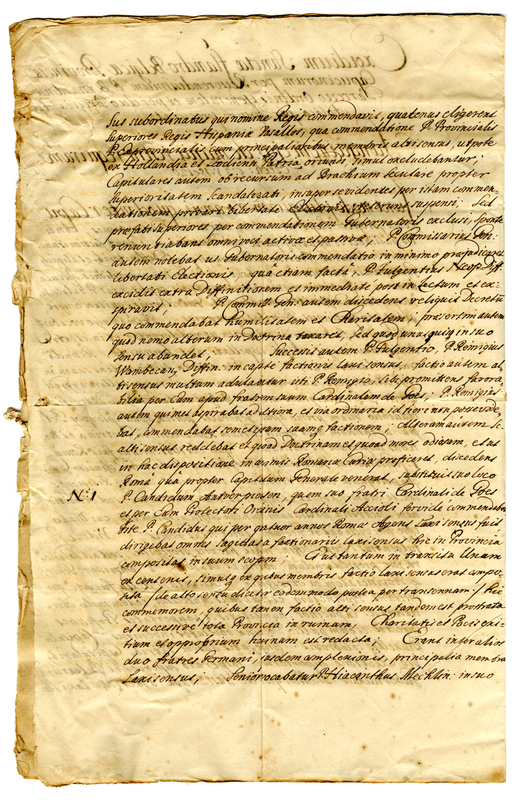 sus subordinabus qui nomine Regis commendavit, quatenus eligerent
superiores Regis Hispaniæ Vasallos, qua commendatione P. Provincialis
P. Exprovincialis cum principalioribus membris altisensus, utpote
ex Hollandia et Leodiensi Patria oriundi simul excludebantur;
Capitulares autem ob recursum ad Brachium seculare propter
superioritatem Scandalizati, insuper evidenter per istam commen-
dationem privari libertate Electionis, steterunt suspensi; Sed
præfati superiores per commendationem Gubernatoris exclusi, sponte
renuntiabant omni voci activæ et passivæ; P. Commissarius Gen:
autem volebat ut Gubernatoris commendatio in minimo præjudicaret
libertati Electionis; qua etiam facta, P. Fulgentius Neop. Diff.
excidit extra Diffinitionem et immediate post in lectum et ex-
spiravit, P. Commiss. Gen: autem discedens reliquit Decretum
quo commendabat humilitatem et Charitatem; præsertim autem
quod nemo alterum in Doctrina taxaret, sed quod unusquisque in suo
sensu abundet; Successit autem P. Fulgentio, P. Remigius
Wambecan, Diffin. in capite factionis laxi sensus, factio autem al-
tisensus multum adulantur isti P. Remigio, sibi promittens favora-
bilia per eum apud fratrem suum Cardinalem de Goes; P. Remigius
autem qui melius spirabat ad altiora, et via ordinaria id fieri non posse vide-
bat, commendabat semetipsam suamq factionem; alteram autem sc.
alti sensus reddebat et quoad Doctrinam et quoad mores odiosam, et sus
in hac dispositione in omnis Romanæ Curiæ proficeret, discedens
Roma qua propter Capitulum Generale venerat, substituit suo loco
N: 1 P. Candidum Antverpiensem, quem suo fratri Cardinali de Goes
et per eum Protectori Ordinis Cardinali Accioli fervide commendabat
Iste P. Candidus qui per quatuor annos Romæ degens laxi sensus fuit
dirigebat omnes sagittas a factionariis laxi sensus hic in Provincia
compositas in suum scopum. Ejus tantum in transitu unam
ex consensis, simulq ex quibus membris factio laxi sensus erat compo-
sita /: de alto sensu dicetur eodem modo postea per transennam :/ hic
commemorem, quibus tandem factio alti sensus tandem est prostrata
et successive tota Provincia in ruinam, Charitatis et Boni exi-
tium et opprobrium hominum est redacta; Erant inter alios
duo fratres Germani, iisdem amplexionis, principalia membra
Laxi sensus, Senior vocabatur P. Hiacinthus Mechlin: in suo